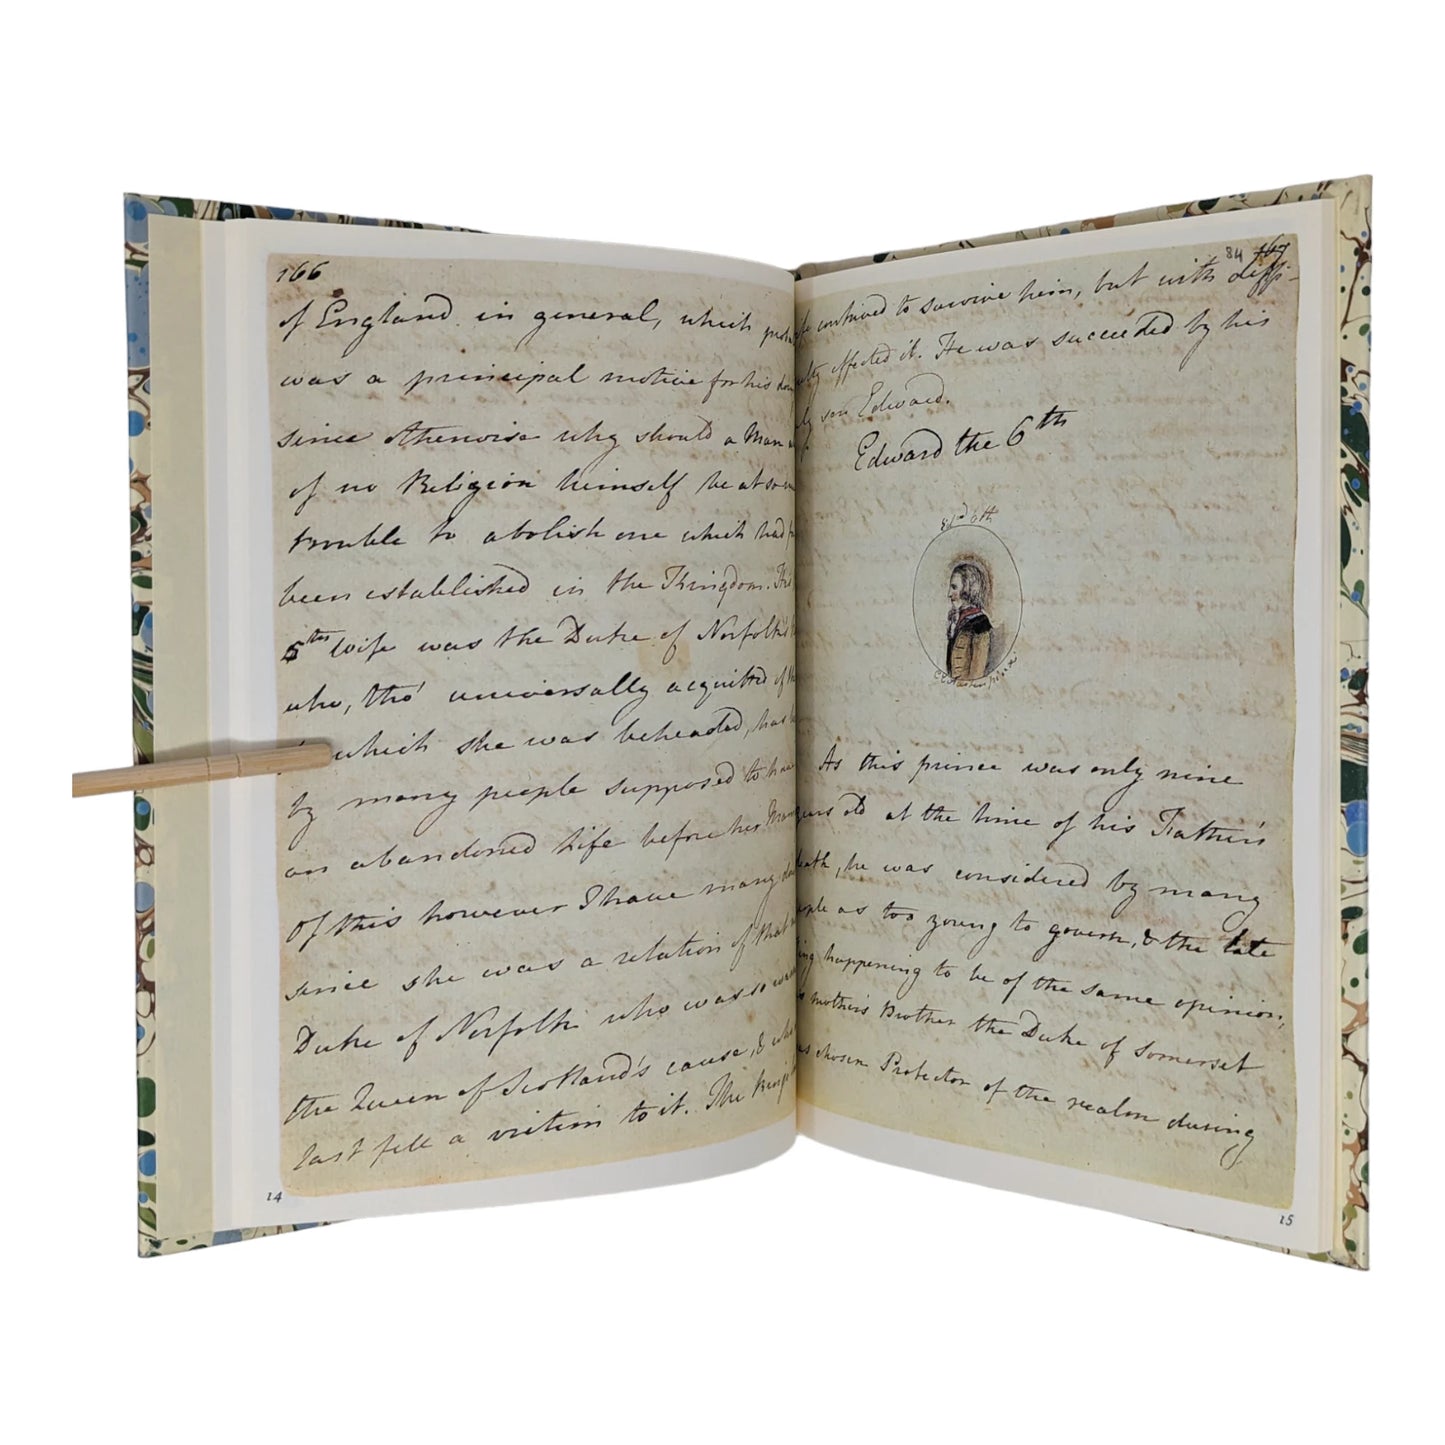 166
of England in general, which
was a principal motive for his
since otherwise why should a Man
of no Religion himself be at so
trouble to abolish one which had
been established in the Kingdom. His
5ths wife was the Duke of Norfolk's
who, tho' universally acquitted of
which she was beheaded, has
by many people supposed to have
an abandoned Life before her
Of this however I have many
since she was a relation of that
Duke of Norfolk who was so
the Queen of Scotland's cause, &
last fell a victim to it. The King's
14
84 167
continued to survive him, but with diffi-
effected it. He was succeeded by his
son Edward.
Edward the 6th
Edd 6th
As this prince was only nine
years old at the time of his Father's
death, he was considered by many
people as too young to govern, & the late
King happening to be of the same opinion,
his mother's Brother the Duke of Somerset
was chosen Protector of the realm during
15